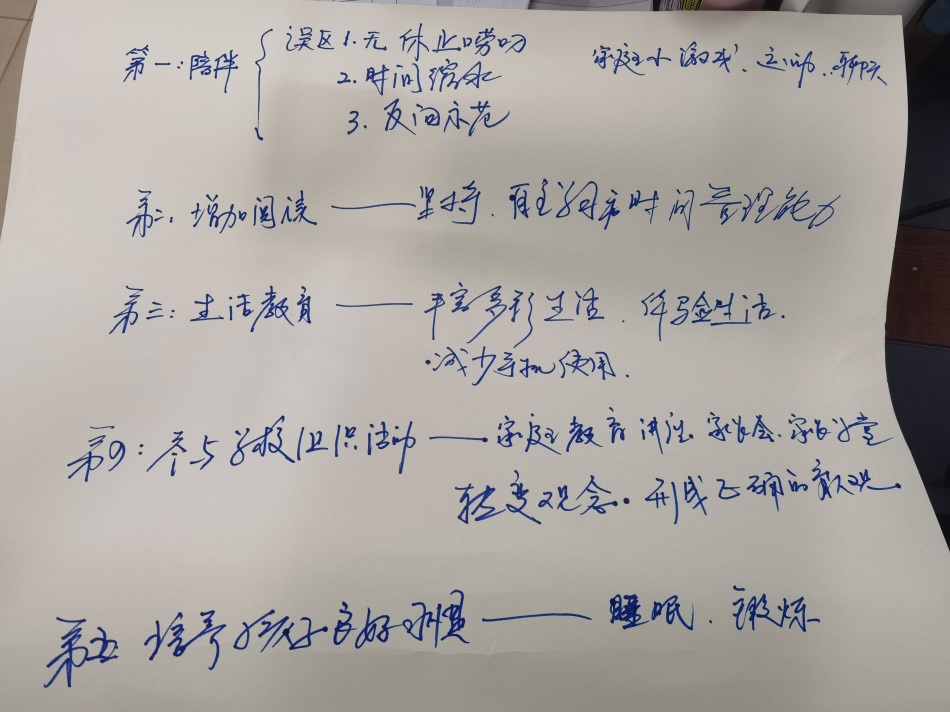 第一:陪伴 误区1.无休止唠叨 家庭小游戏、运动、聊天
2.时间缩水
3.反向示范
第二,增加阅读——坚持、自主 时间管理能力
第三:生活教育——丰富多彩生活、体验生活.
·减少手机使用.
第四:参与学校组织活动——家庭教育讲座、家长会、家长学堂
转变观念.形成正确的育儿观.
第五 培养孩子良好习惯——睡眠、锻炼